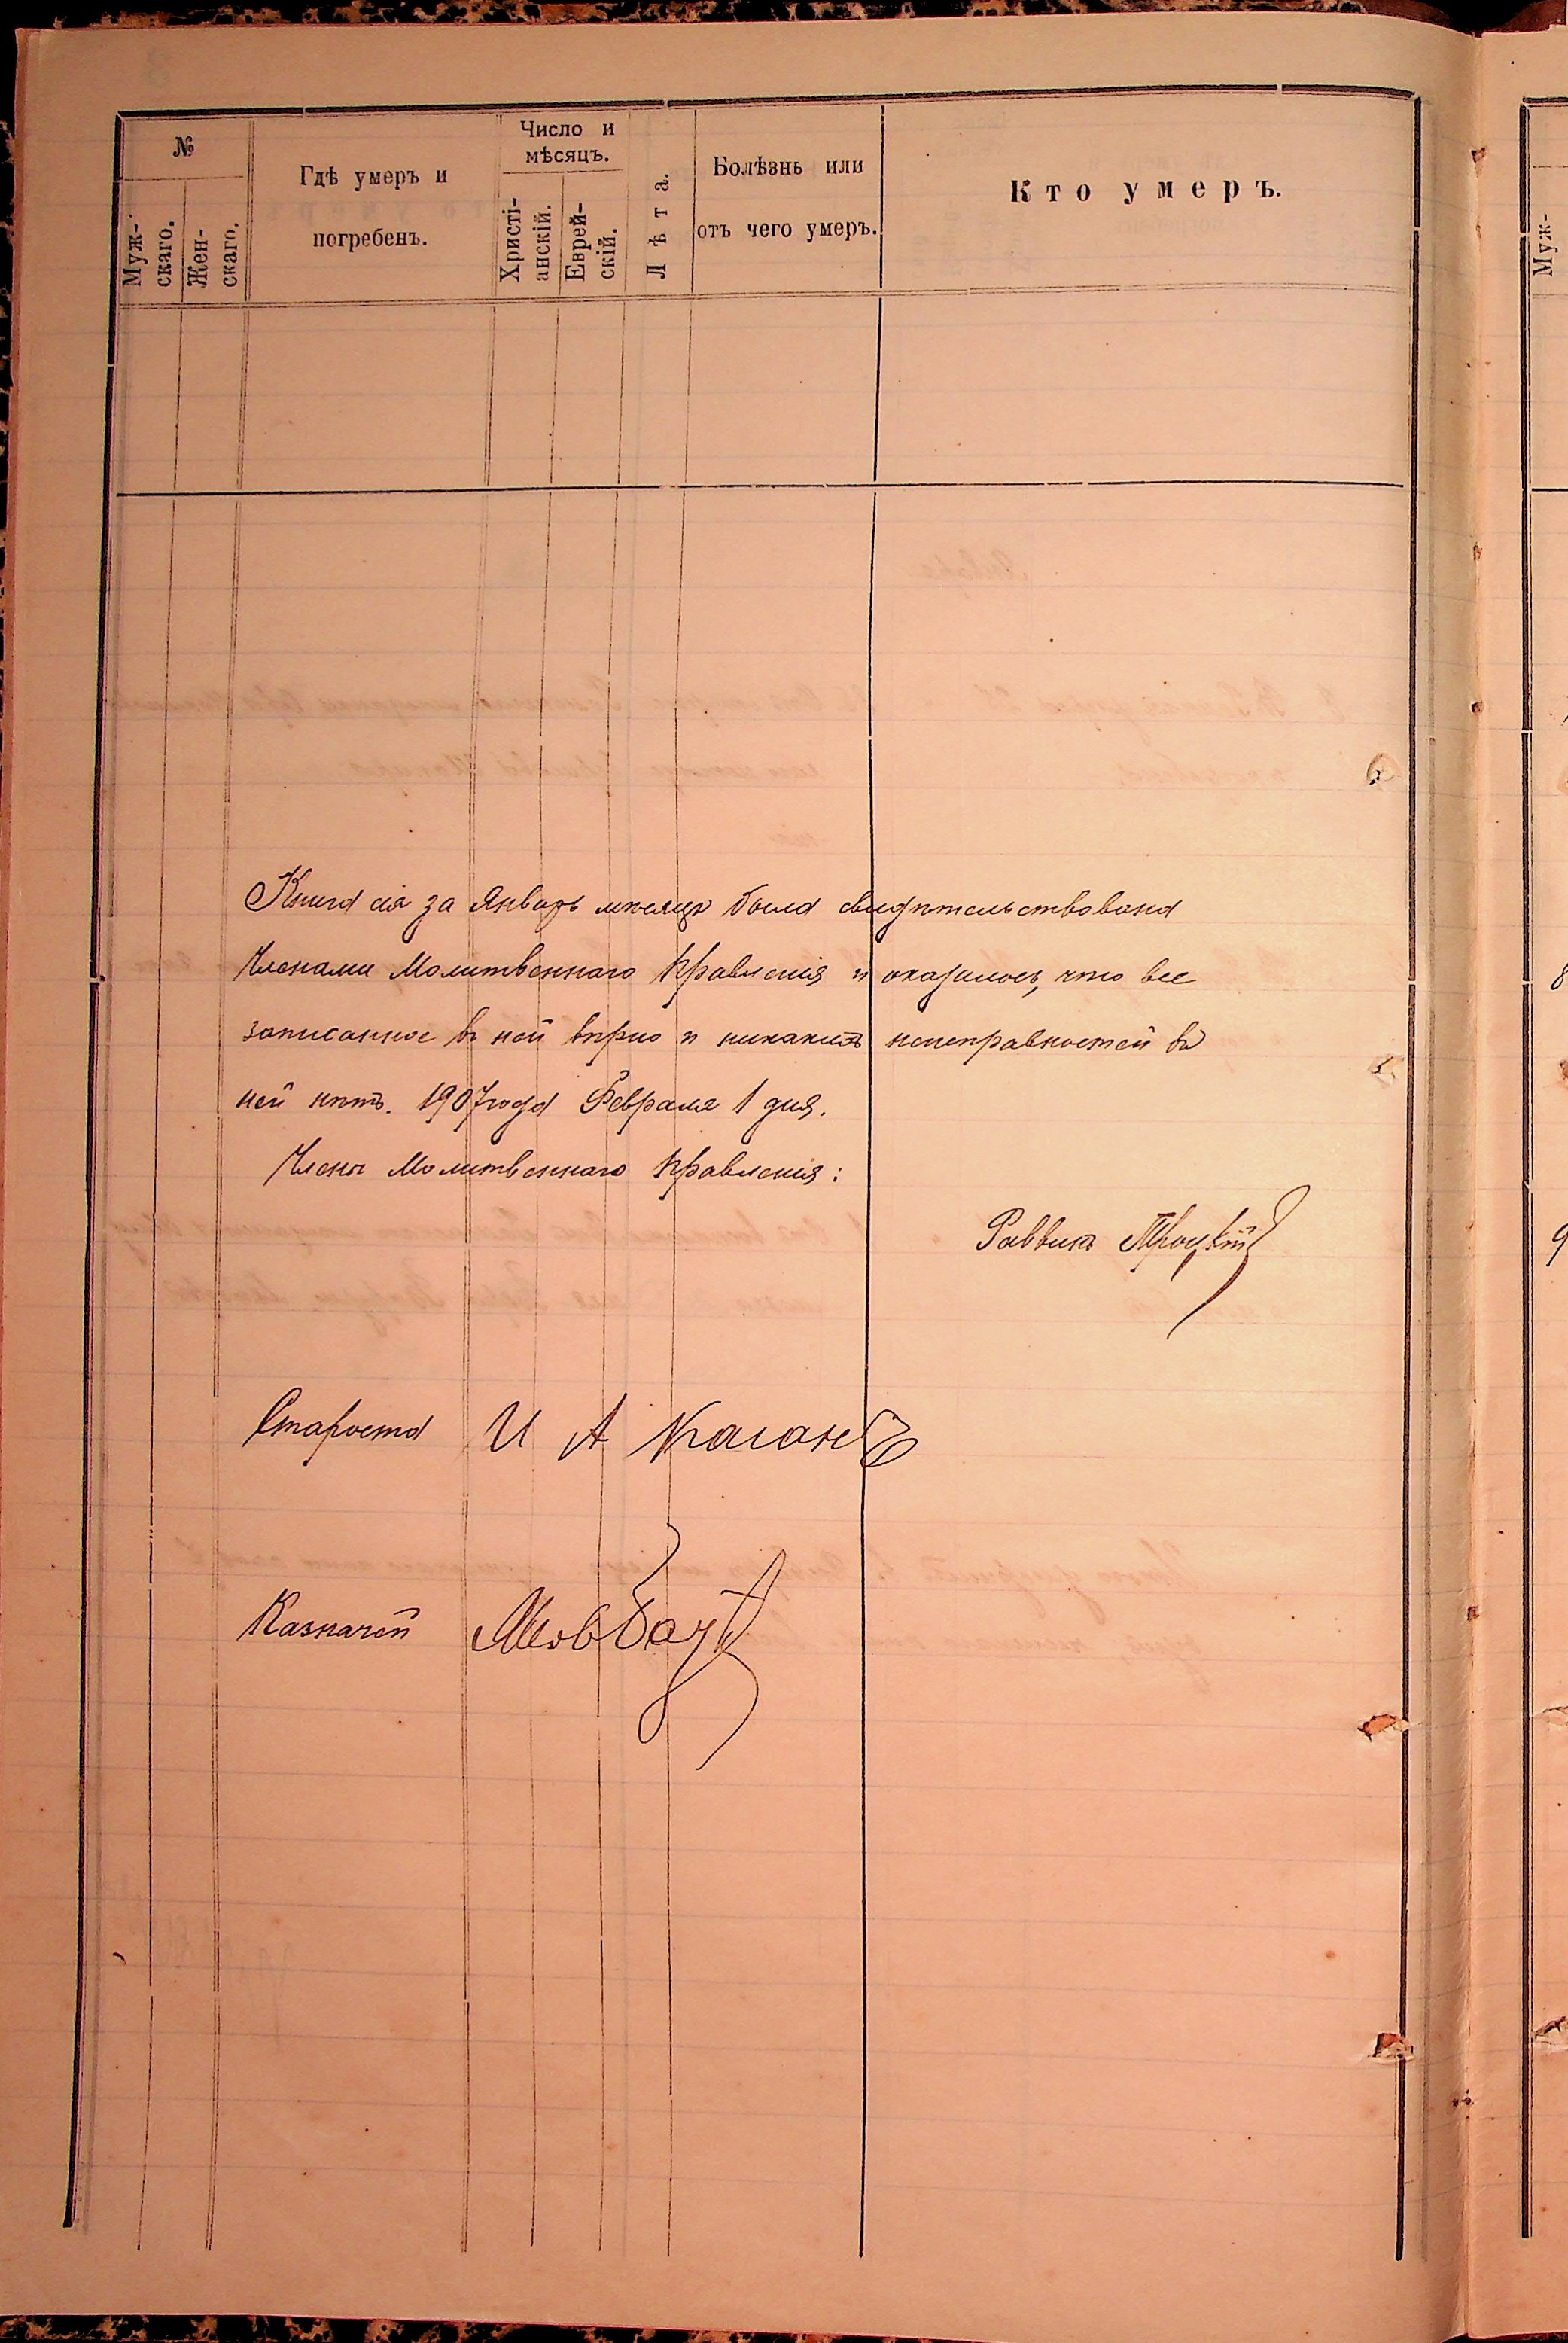 №
Муж-
скаго.
Жен-
скаго.
Гдѣ умеръ и
погребенъ.
Число и
мѣсяцъ.
Христі-
анскій.
Еврей-
скій.
Лѣта.
Болѣзнь или
отъ чего умеръ.
Кто умеръ.
Муж-
Книга сія за Январь мѣсяцъ была свидѣтельствована
Членами Молитвеннаго Правленія и оказалось, что все
записанное въ ней вѣрно и никакихъ неисправностей въ
ней нѣтъ. 1907 года Февраля 1 дня.
Члены Молитвеннаго Правленія:
Раввинъ Троцкій
Староста И А Каганъ
Казначей
8
9